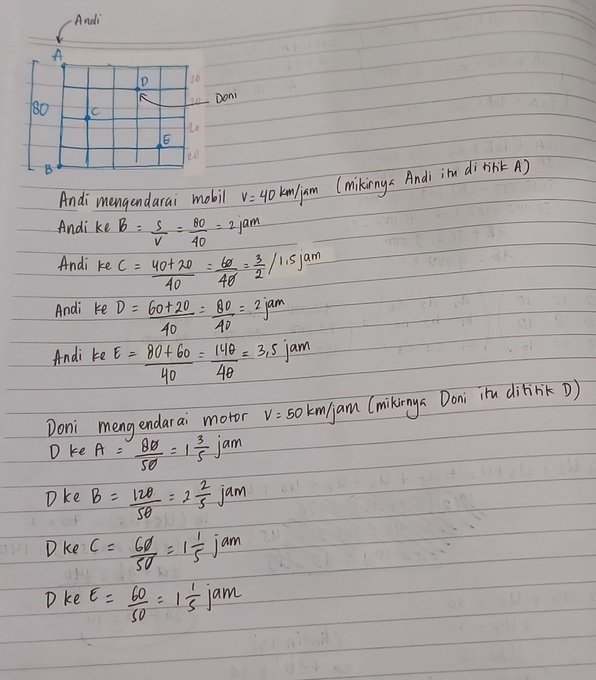 Andi
A
20
D
80
20
Doni
C
20
E
20
B
Andi mengendarai mobil v = 40 km/jam (mikirnya Andi itu di titik A)
Andi ke B = s/v = 80/40 = 2 jam
Andi ke C = 40+20/40 = 60/40 = 3/2 / 1,5 jam
Andi ke D = 60+20/40 = 80/40 = 2 jam
Andi ke E = 80+60/40 = 140/40 = 3,5 jam
Doni mengendarai motor v = 50 km/jam (mikirnya Doni itu dititik D)
D ke A = 80/50 = 1 3/5 jam
D ke B = 120/50 = 2 2/5 jam
D ke C = 60/50 = 1 1/5 jam
D ke E = 60/50 = 1 1/5 jam